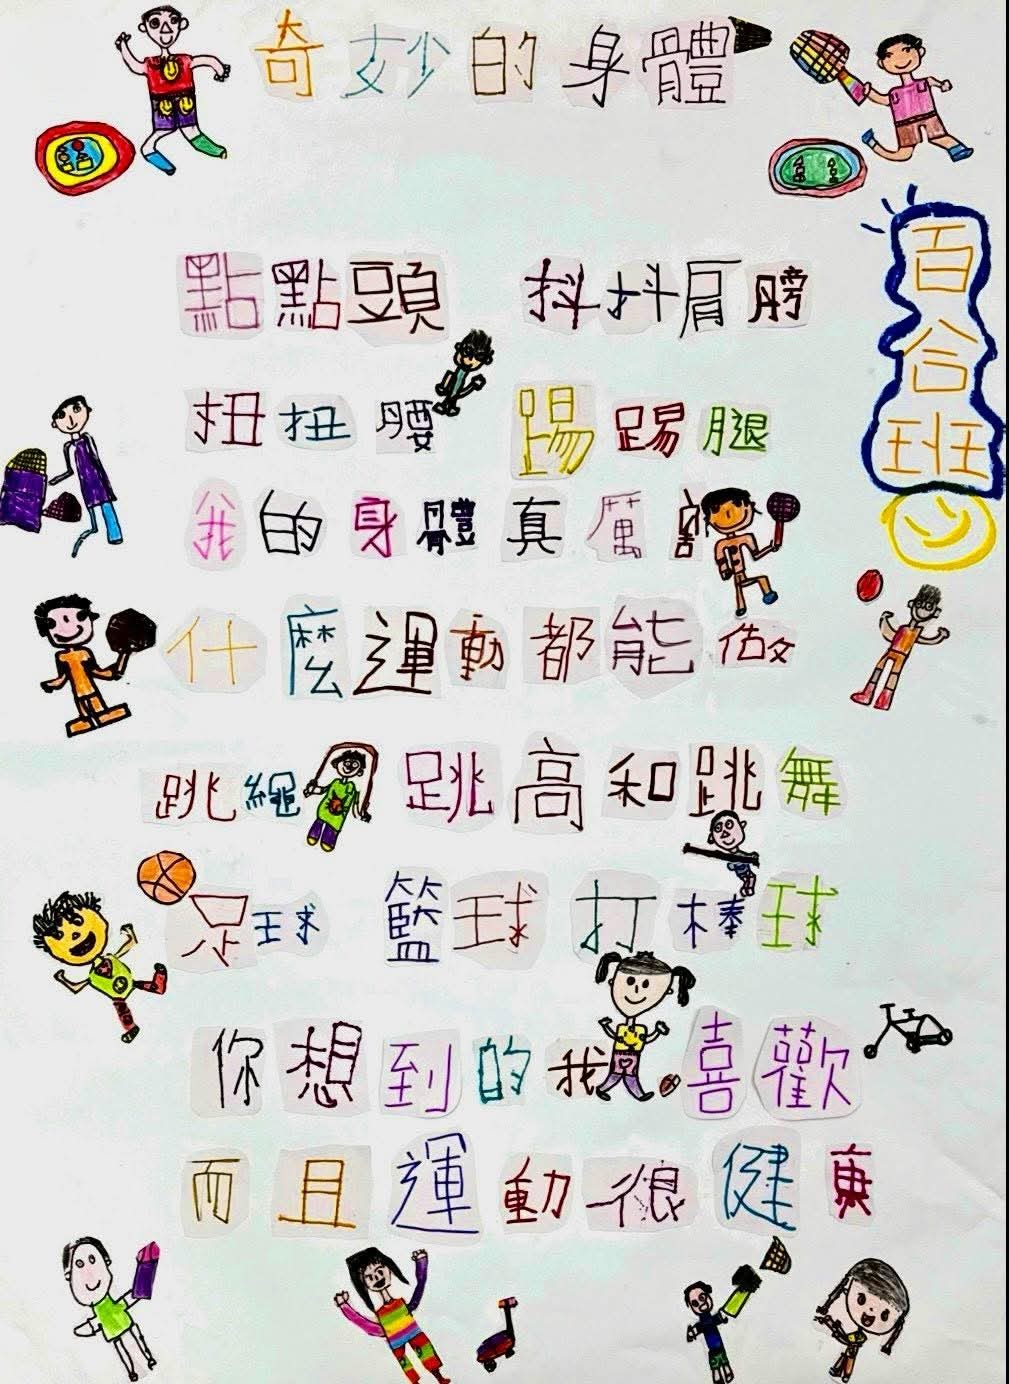 奇妙的身體
點點頭 抖抖肩膀
扭扭腰 踢踢腿
我的身體真厲害
什麼運動都能做
跳繩 跳高和跳舞
足球 籃球 打棒球
你想到的我喜歡
而且運動很健康
百合班